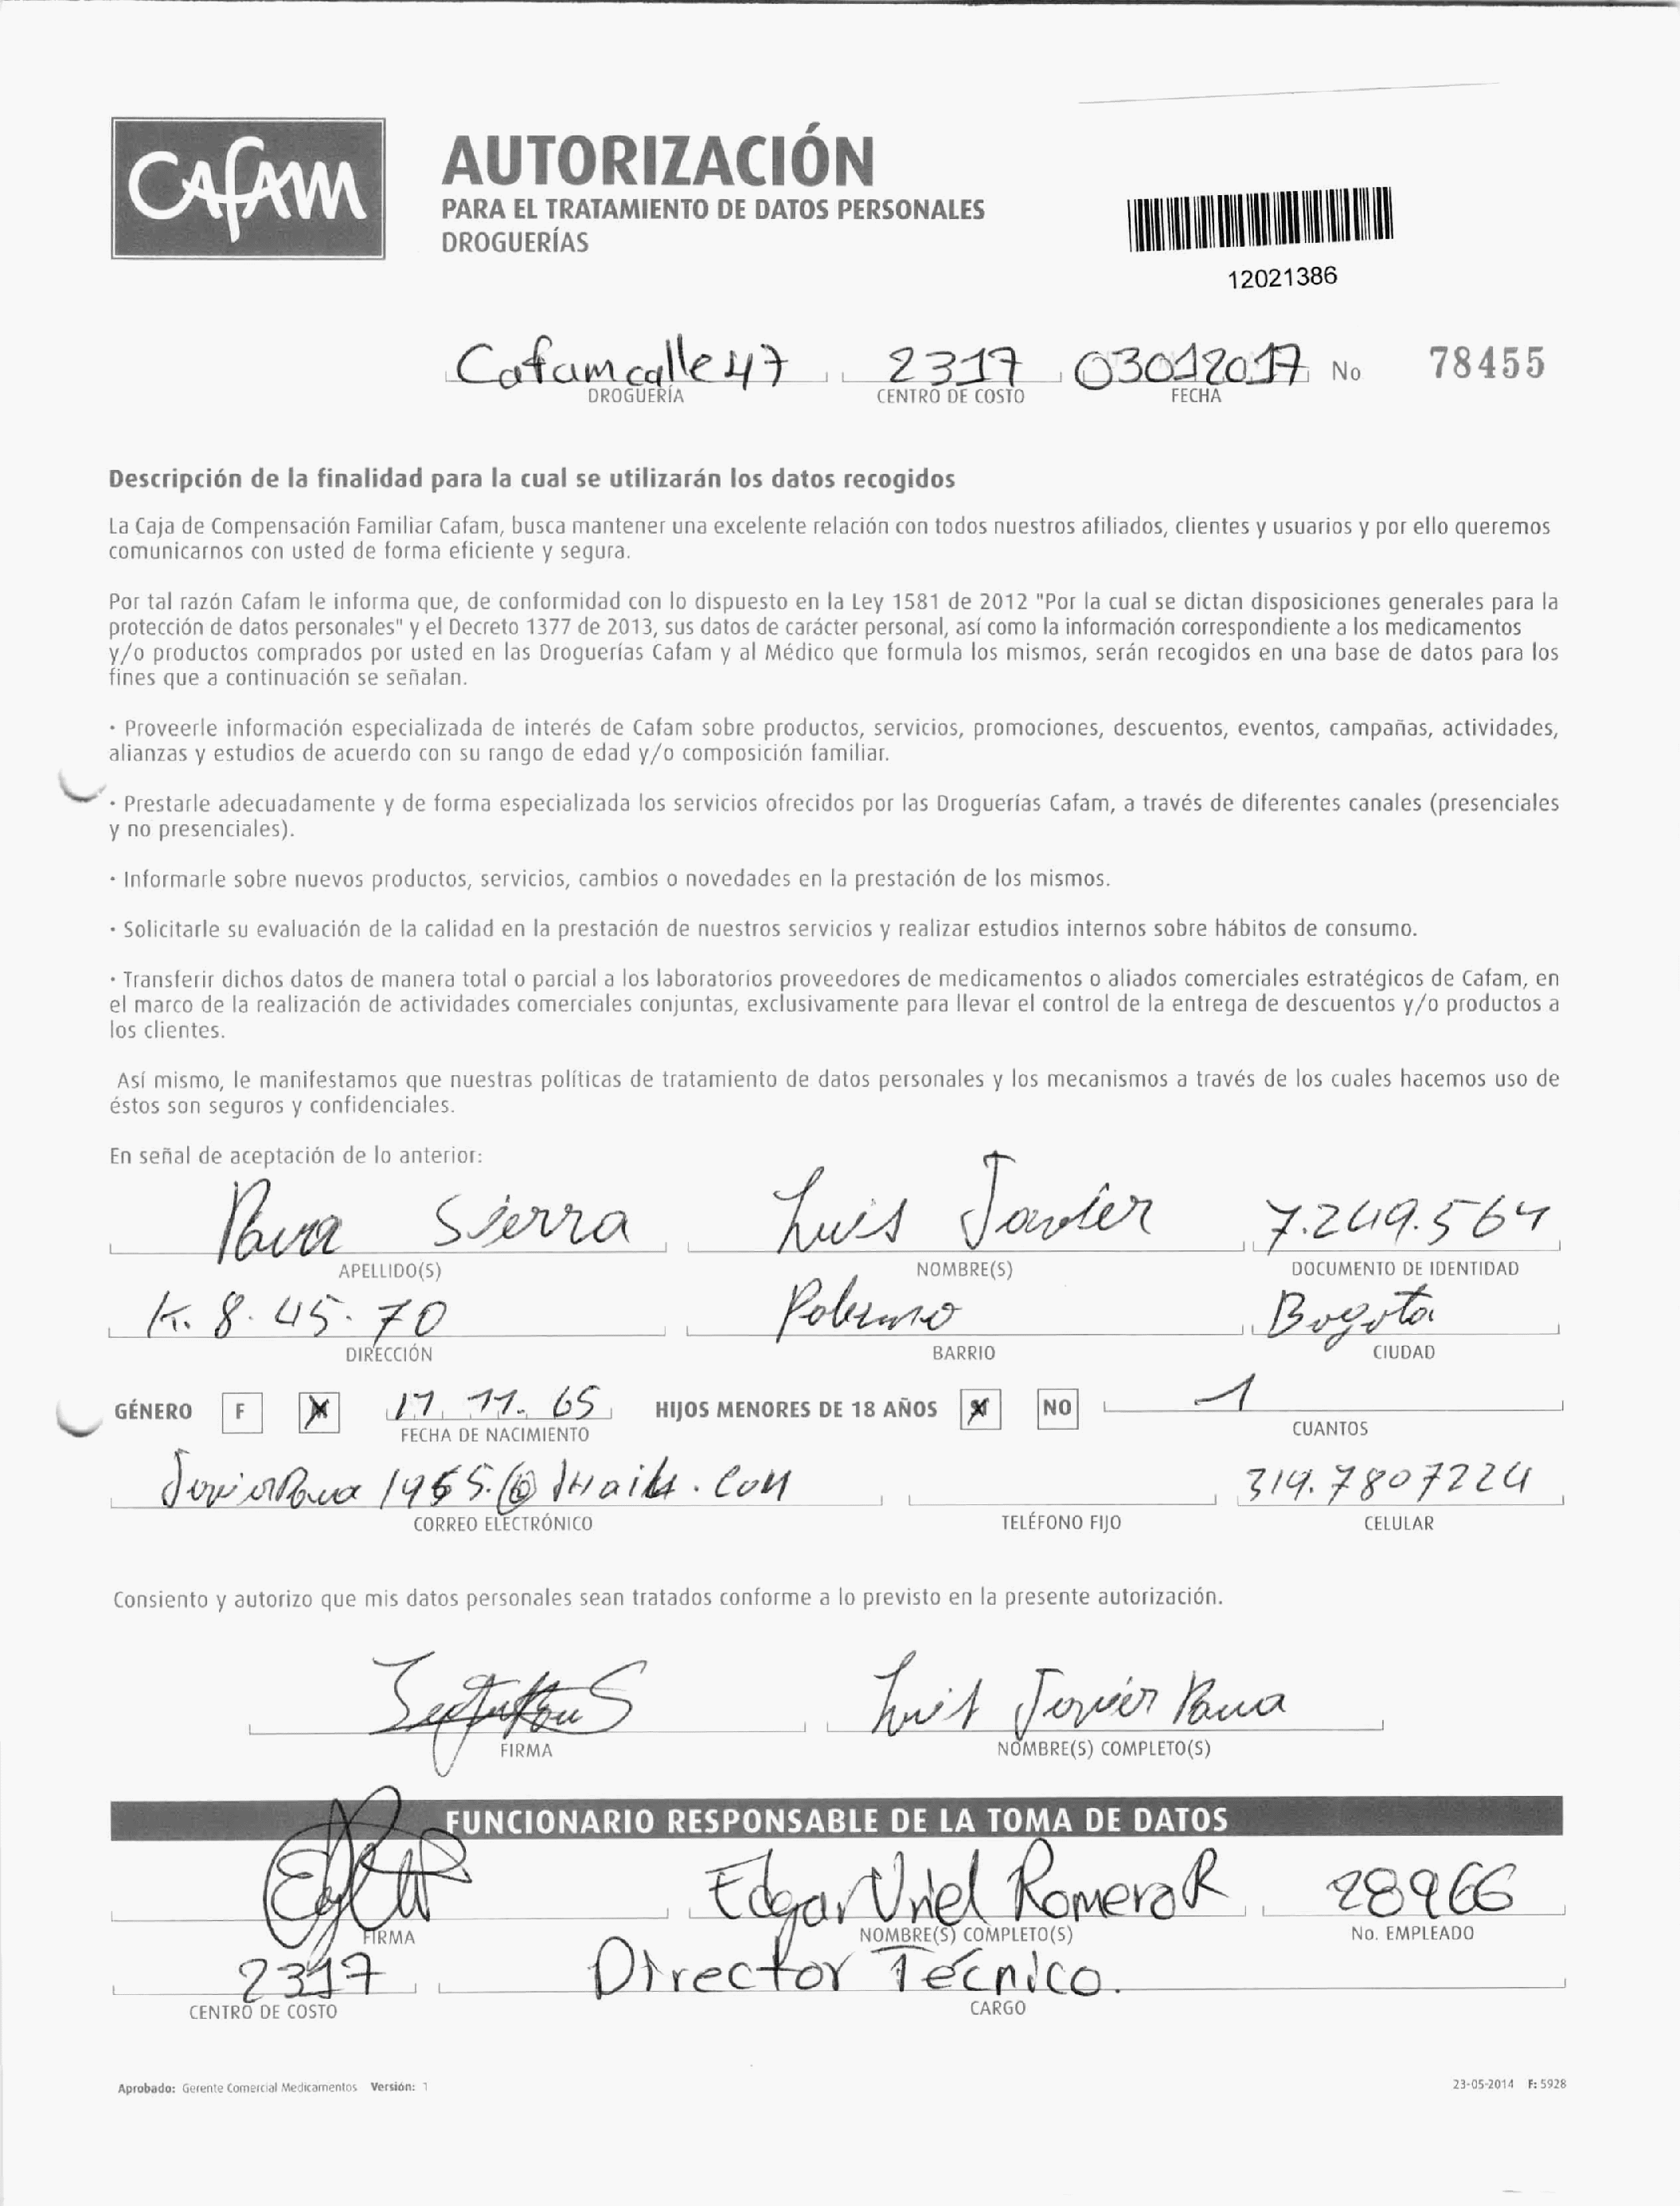 CAFAM
AUTORIZACIÓN
PARA EL TRATAMIENTO DE DATOS PERSONALES
DROGUERÍAS
12021386
Cafam calle 47 2317 03012017 No 78455
DROGUERÍA CENTRO DE COSTO FECHA
Descripción de la finalidad para la cual se utilizarán los datos recogidos
La Caja de Compensación Familiar Cafam, busca mantener una excelente relación con todos nuestros afiliados, clientes y usuarios y por ello queremos
comunicarnos con usted de forma eficiente y segura.
Por tal razón Cafam le informa que, de conformidad con lo dispuesto en la Ley 1581 de 2012 "Por la cual se dictan disposiciones generales para la
protección de datos personales" y el Decreto 1377 de 2013, sus datos de carácter personal, así como la información correspondiente a los medicamentos
y/o productos comprados por usted en las Droguerías Cafam y al Médico que formula los mismos, serán recogidos en una base de datos para los
fines que a continuación se señalan.
· Proveerle información especializada de interés de Cafam sobre productos, servicios, promociones, descuentos, eventos, campañas, actividades,
alianzas y estudios de acuerdo con su rango de edad y/o composición familiar.
· Prestarle adecuadamente y de forma especializada los servicios ofrecidos por las Droguerías Cafam, a través de diferentes canales (presenciales
y no presenciales).
· Informarle sobre nuevos productos, servicios, cambios o novedades en la prestación de los mismos.
· Solicitarle su evaluación de la calidad en la prestación de nuestros servicios y realizar estudios internos sobre hábitos de consumo.
· Transferir dichos datos de manera total o parcial a los laboratorios proveedores de medicamentos o aliados comerciales estratégicos de Cafam, en
el marco de la realización de actividades comerciales conjuntas, exclusivamente para llevar el control de la entrega de descuentos y/o productos a
los clientes.
Así mismo, le manifestamos que nuestras políticas de tratamiento de datos personales y los mecanismos a través de los cuales hacemos uso de
éstos son seguros y confidenciales.
En señal de aceptación de lo anterior:
Pava Sierra Luis Javier 7.249.564
APELLIDO(S) NOMBRE(S) DOCUMENTO DE IDENTIDAD
K. 8. 45. 70 Palermo Bogota
DIRECCIÓN BARRIO CIUDAD
GÉNERO F X 17. 11. 65 HIJOS MENORES DE 18 AÑOS X NO 1
FECHA DE NACIMIENTO CUANTOS
319.7807224
CORREO ELECTRÓNICO TELÉFONO FIJO CELULAR
Consiento y autorizo que mis datos personales sean tratados conforme a lo previsto en la presente autorización.
Luis Javier Pava
FIRMA NOMBRE(S) COMPLETO(S)
FUNCIONARIO RESPONSABLE DE LA TOMA DE DATOS
Edgar Uriel Romero R 28966
FIRMA NOMBRE(S) COMPLETO(S) No. EMPLEADO
2317 Director Técnico.
CENTRO DE COSTO CARGO
Aprobado: Gerente Comercial Medicamentos Versión: 1 23-05-2014 F: 5928